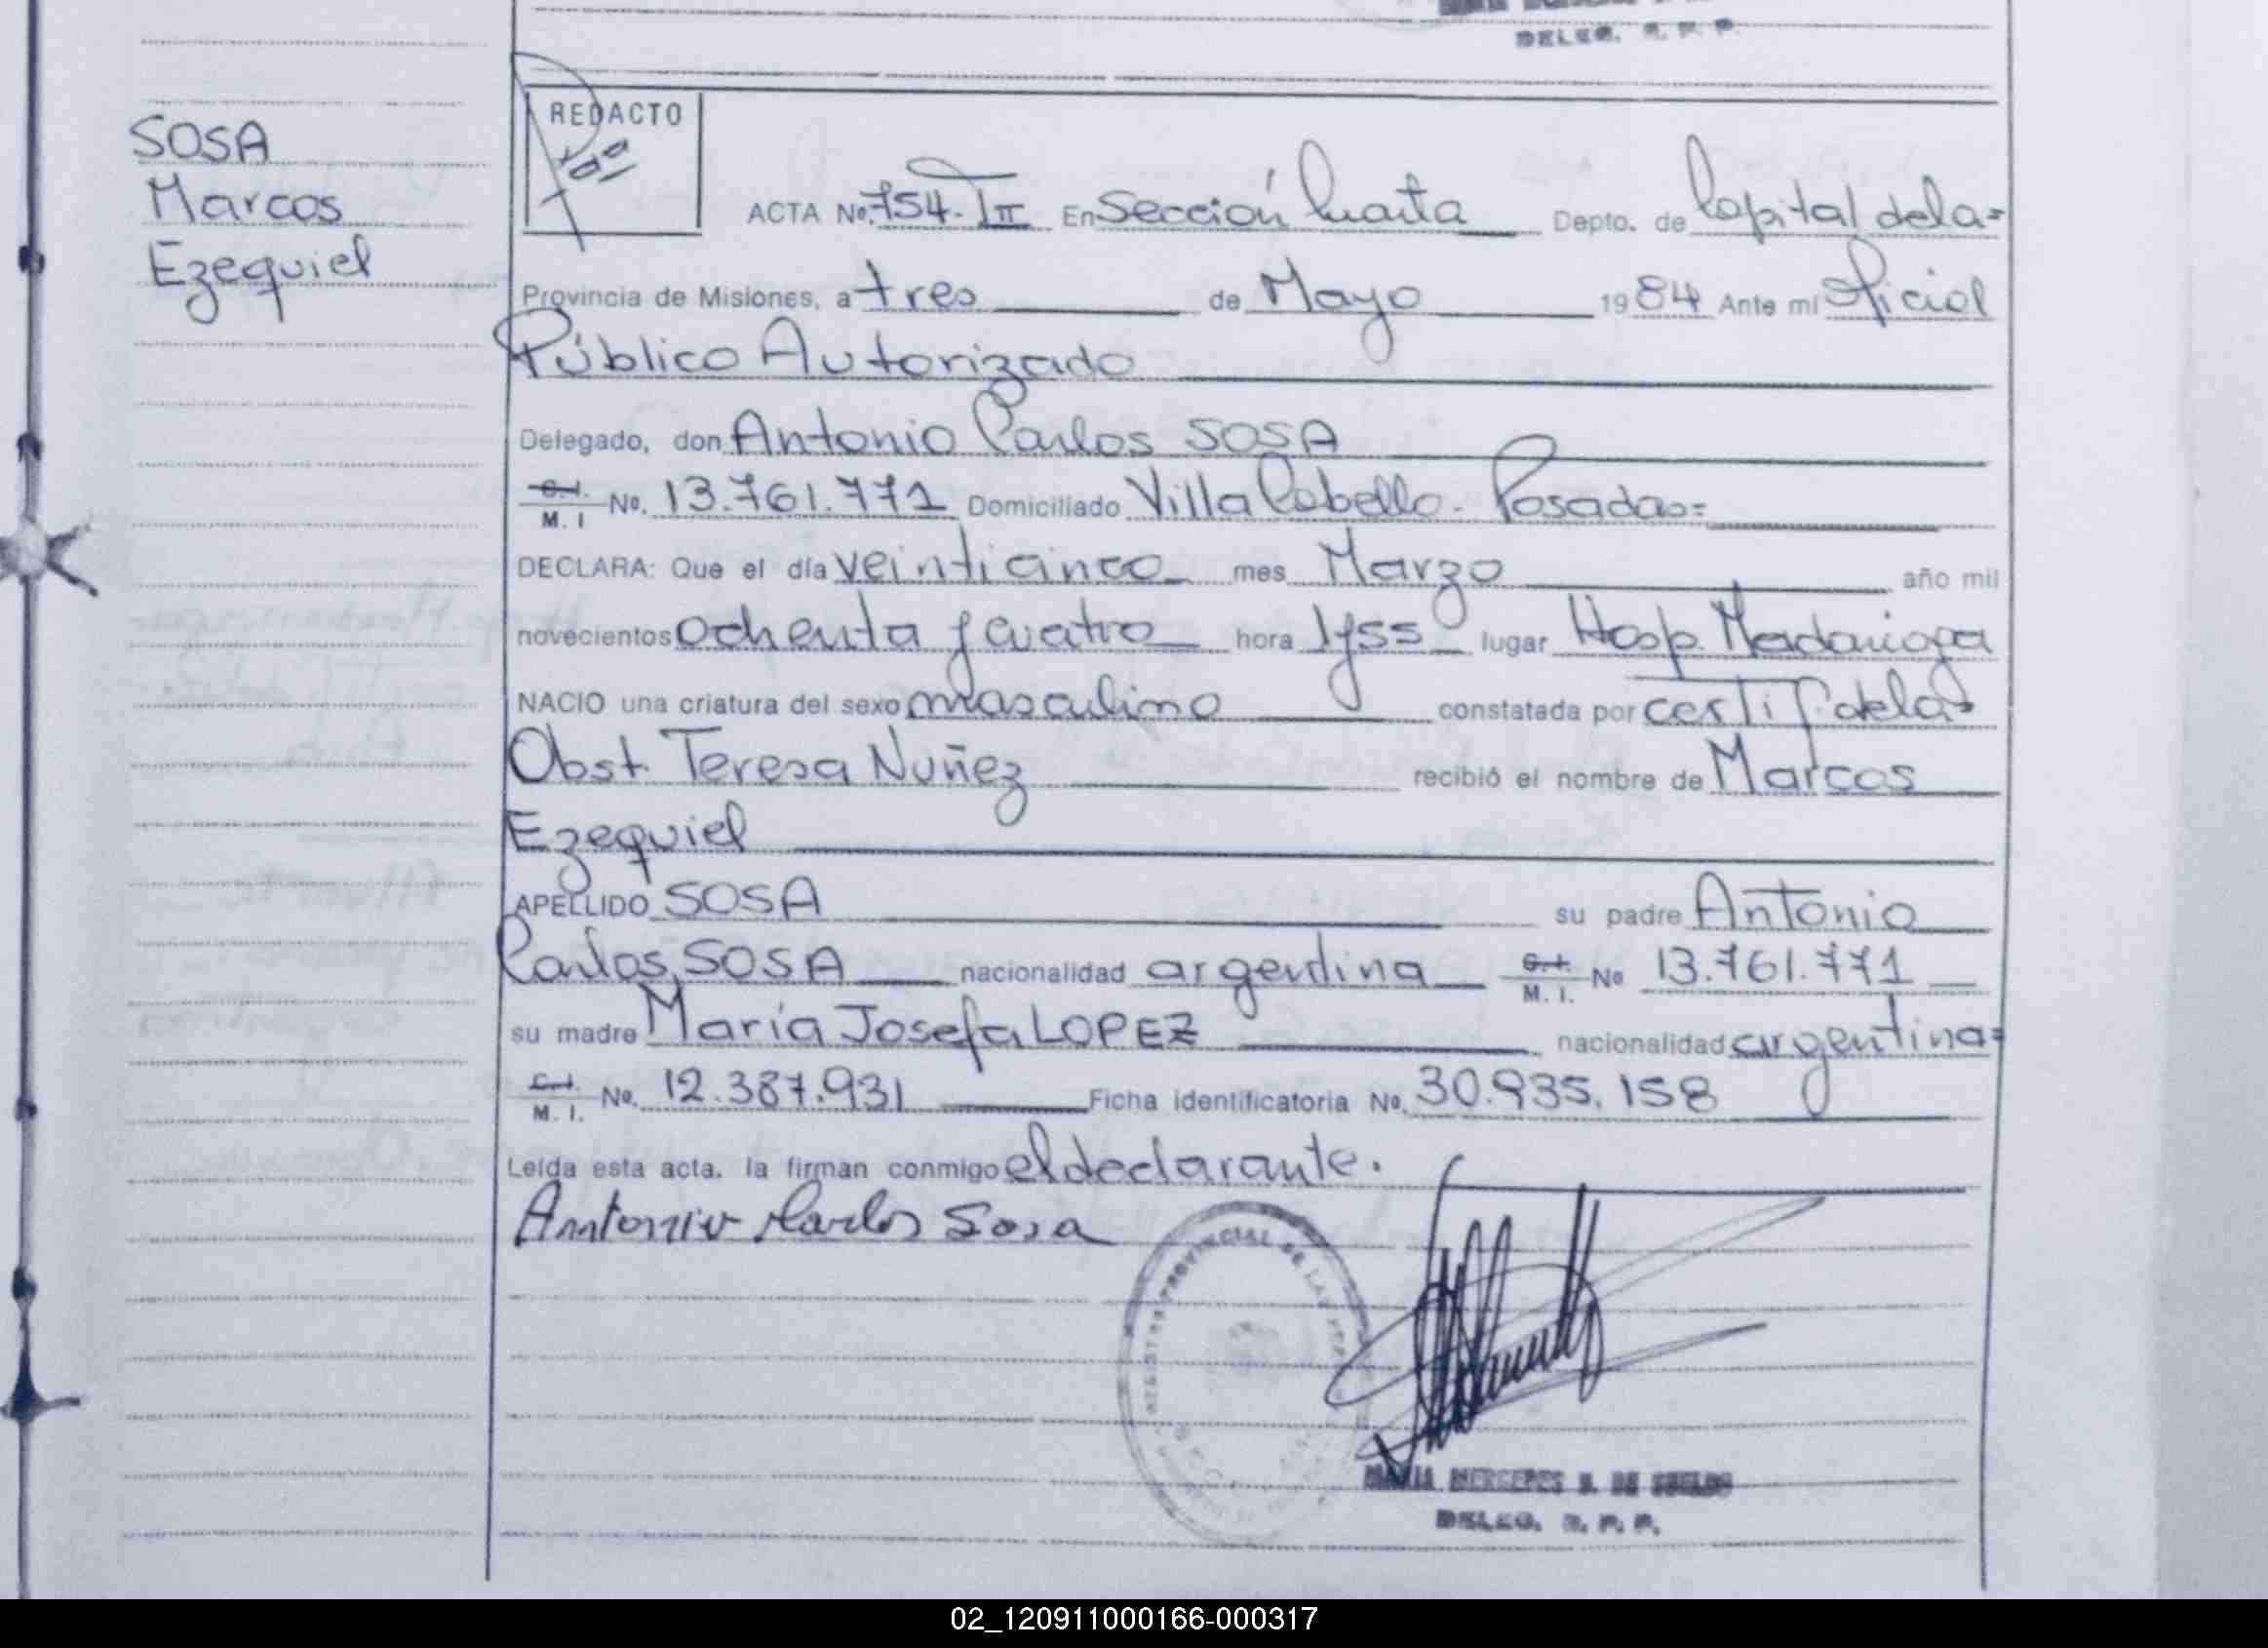 DELEG. R. P. P.
REDACTO
SOSA
Marcos
Ezequiel
ACTA No. 754. T II En Sección Cuarta Depto. de Capital de la=
Provincia de Misiones, a tres de Mayo 1984 Ante mi Oficial
Público Autorizado
Delegado, don Antonio Carlos SOSA
C.I. M. I No. 13.761.771 Domiciliado Villa Cabello - Posadas=
DECLARA: Que el día veinticinco mes Marzo año mil
novecientos ochenta y cuatro hora lugar Hosp. Madariaga
NACIO una criatura del sexo masculino constatada por certif. de la=
Obst. Teresa Nuñez recibió el nombre de Marcos
Ezequiel
APELLIDO SOSA su padre Antonio
Carlos SOSA nacionalidad argentina C.I. M. I. No 13.761.771
su madre María Josefa LOPEZ nacionalidad argentina=
C.I. M. I. No. 12.387.931 Ficha identificatoria No. 30.935.158
Leída esta acta. la firman conmigo el declarante.
Antonio Carlos Sosa
PROVINCIAL DE LAS
MARIA MERCEDES DE
DELEG. R. P. P.
02_120911000166-000317